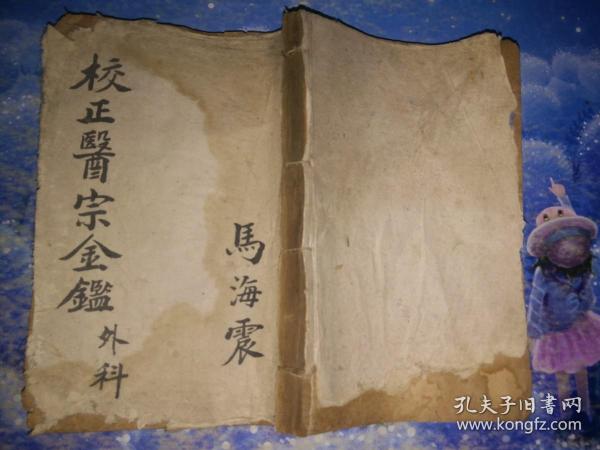 校正醫宗金鑑
外科
馬海震
孔夫子旧书网
www.kongfz.com